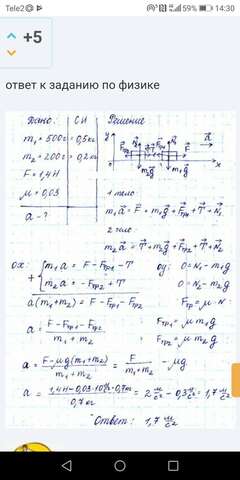 Tele2 59% 14:30
+5
ответ к заданию по физике
Дано: СИ Решение
m₁ = 500г = 0,5кг
m₂ = 200г = 0,2кг
F = 1,4Н
μ = 0,03
a - ?
y a
Fтр2 N₂ T Fтр1 N₁ F
m₂g m₁g x
1 тело:
m₁a = F + m₁g + Fтр1 + T + N₁
2 тело:
m₂a = T + m₂g + Fтр2 + N₂
ox: m₁a = F - Fтр1 - T oy: 0 = N₁ - m₁g
+ m₂a = - Fтр2 + T 0 = N₂ - m₂g
a(m₁+m₂) = F - Fтр1 - Fтр2 Fтр = μ · N
a = F - Fтр1 - Fтр2 / m₁ + m₂ Fтр1 = μ m₁g
Fтр2 = μ m₂g
a = F - μg(m₁+m₂) / m₁ + m₂ = F / m₁ + m₂ - μg
a = 1,4Н - 0,03·10 м/с² · 0,7кг / 0,7кг = 2 м/с² - 0,3 м/с² = 1,7 м/с²
Ответ: 1,7 м/с²